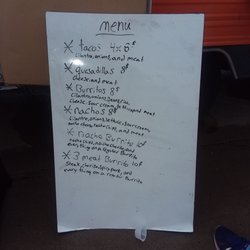 menu
* tacos 4x8$
cilantro, onions, and meat
* quesadillas 8$
cheese, and meat
* Burritos 8$
cilantro, onions, beans, rice,
cheese, sour cream, and chopped meat
* nachos 8$
cilantro, onions, lettuce, sour cream,
nacho cheese, nacho chips, and meat
* nacho Burrito 10$
nacho chips, nacho cheese, and
everything on a regular Burrito
* 3 meat Burrito 10$
Steak, chorizo, and
everything on a regular Burrito